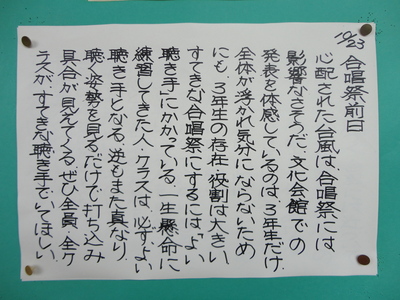 10/23 合唱祭前日
心配された台風は、合唱祭には
影響なさそうだ。文化会館での
発表を体感しているのは3年生だけ。
全体が浮かれ気分にならないため
にも、3年生の存在・役割は大きい
すてきな合唱祭にするには「よい
聴き手」にかかっている。一生懸命に
練習してきた人・クラスは、必ず、よい
聴き手となる。逆もまた真なり。
聴く姿勢を見るだけで打ち込み
具合が見えてくる。ぜひ全員・全ク
ラスが、すてきな聴き手でいてほしい。